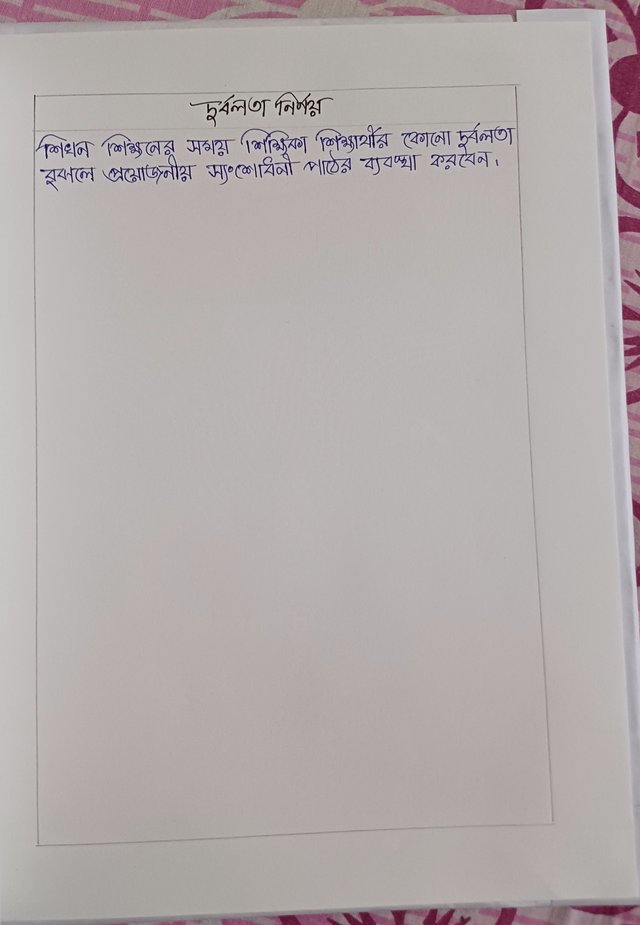 দুর্বলতা নির্ণয়
শিখন শিক্ষনের সময় শিক্ষিকা শিক্ষার্থীর কোনো দুর্বলতা
বুঝলে প্রয়োজনীয় সংশোধনী পাঠের ব্যবস্থা করবেন।